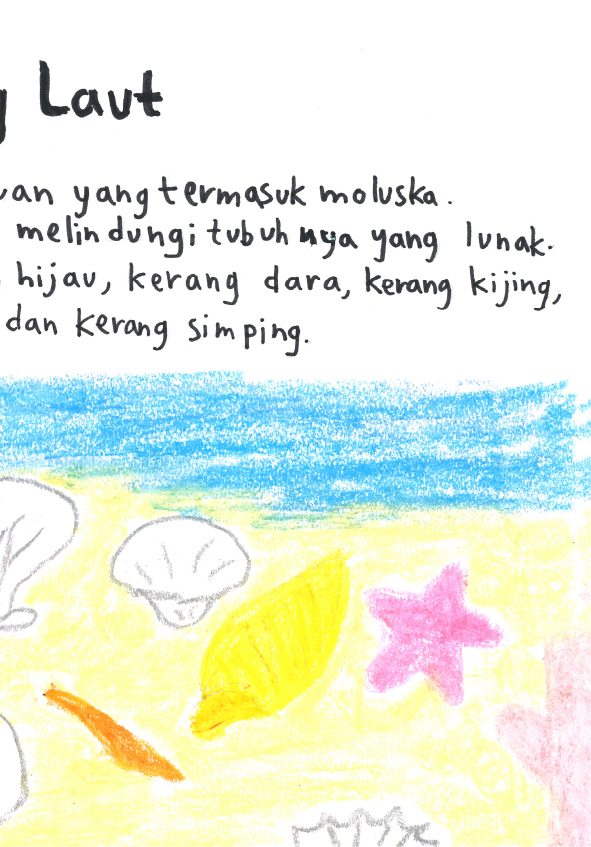 Laut
yang termasuk moluska.
melindungi tubuhnya yang lunak.
hijau, kerang dara, kerang kijing,
dan kerang simping.